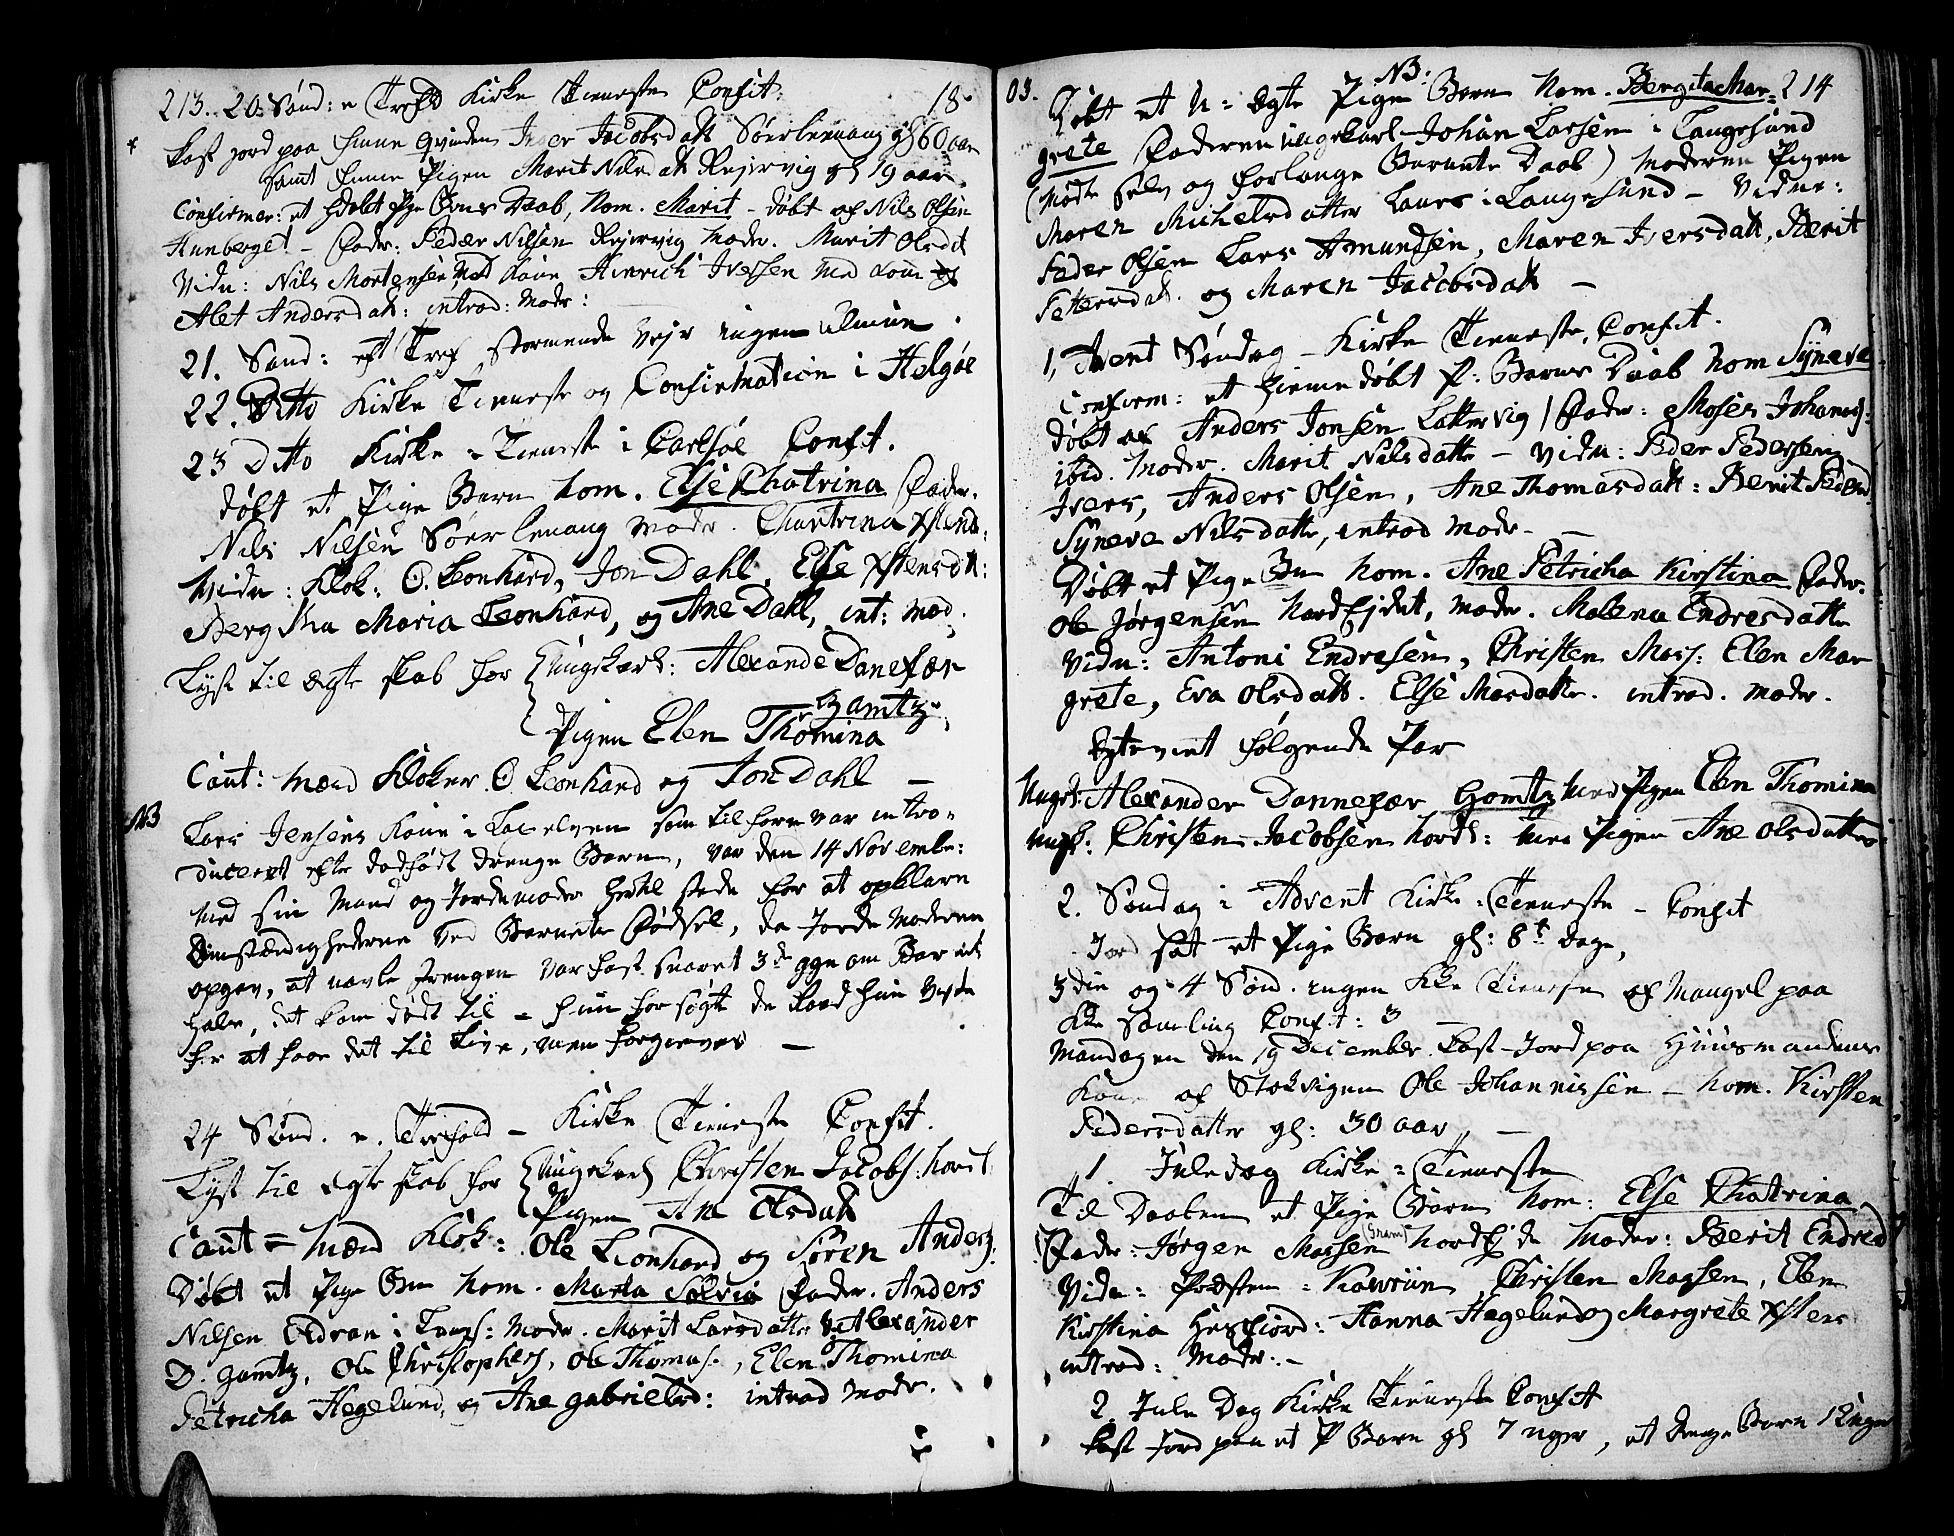 213. 20. Sønd: e Tref Kirke Tieneste Confit: 18
kast jord paa Finne qvinden Inger Jacobsdatt Sørlenang gl 60 aar
samt Finne Pigen Marit Nilsdatt Reiervig gl 19 aar.
Confirmer: et hdøbt Pge Børns Daab, Nom. Marit - døbt af Nils Olsen
Fader: Peder Nilsen Reiervig Moder. Marit Olsdt
Vidn: Nils Mortensen, med kone Hinrich Iversen med kone og
Alet Andersdatt: introd: Moder:
21. Sønd: eft Tref stormende Vejr ingen almue.
22. Ditto Kirke Tieneste og Confirmation i Helgøe
23 Ditto Kirke-Tieneste i Carlsøe Confit.
døbt et Pige Barn Nom. Else Chatrina Fader.
Nils Nilsen Sørlenang Moder. Chartrina Xstens:
Vidn: Klok: O. Leonhard, Jon Dahl, Else Xstensdtt:
Berg Maria Leonhard, og Ane Dahl, int: Mod.
Lyst til Ægte skab for Ungekarl: Alexander Danefær
Gamtz
Pigen Elen Thomina
Caut: Mænd Kloker O. Leonhard og Jon Dahl
NB Lars Jensens kone i som tilforn var intro-
duceret efter dødfødt drenge Barn, var den 14 Novembr:
med sin Mand og Jordemoder her til stede for at opklare
Omstændighederne ved Barnets Fødsel, da Jorde Moderen
opgav, at navle strengen var fast snaret 3de gge om Barnets
hals, det kom dødt til - hun forsøgte de Raad hun vidste
for at faae det til Live, men forgieves
24 Sønd. e. Trefold - Kirke Tieneste Confit.
Lyst til Ægte skab for Ungekarl Christen Jacobs:
Pigen Ane Olsdatt
Caut = Mænd Klok: Ole Leonhard og Søren Anders:
Døbt et Pige Brn Nom. Marta Sølvia Fader. Anders
Nilsen i Langs: Moder. Marit Larsdatter V: Alexander
D. Gamtz, Ole Christophers, Ole Thomas., Elen Thomina
Petricha Hegelund, og Ane Gabrielsd: introd Moder.
03. NB: 214
Døbt et U: Ægte Pige Barn Nom. Bergita Mar-
grete Faderen Ungekarl Johan Larsen i Langesund
(Mødte selv og forlangte Barnets Daab) Moderen Pigen
Maren Michelsdatter i Langesund - Vidne:
Peder Olsen Lars Amundsen, Maren Iversdatt, Berit
Pettersdatt. og Maren Jacobsdatt
1, Avent Søndag - Kirke Tieneste, Confit.
Confirm: et hiemedøbt P: Barns Daab Nom Syneva
døbt af Anders Jonsen Lattervig / Fader: Moses Johans:
ibid. Moder. Marit Nilsdatter - Vidn: Peder Pedersen
Ivers, Anders Olsen, Ane Thomasdatt: Berit
Syneva Nilsdatter, introd Moder
Døbt et Pige Bn Nom. Ane Petricha Kirstina Fader.
Ole Jørgensen Nordfjdet, Moder. Malena Endresdatter
Vidn: Antoni Endresen, Christen Mass: Elen Mar
grete, Eva Olsdatt. Else Masdatter. introd. Moder.
følgende Par
Ungk: Alexander Dannefær Gomtz med Pigen Elen Thomina
Ungk: Christen Jacobsen med Pigen Ane Olsdatter
2. Søndag i Advent Kirke-Tieneste - Confit
Jord sat et Pige Barn gl: 8te Dage,
3die og 4 Sønd. ingen Kke Tieneste af Mangel paa
Samling Confit: 3
Mandagen den 19 December Kast Jord paa Huusmandens
Kone af Stokvigen Ole Johannissen - Nom. Kirsten
Pedersdatter gl: 30 aar
1. Juledag Kirke-Tieneste
Til Daaben et Pige Barn Nom: Else Chatrina
Fader: Jørgen Massen Moder: Berit Endresd
Vidn: Christen Massen, Elen
Kirstina Hanna Hegelund og Margrete Xstens
introd: Moder.
2. Jule Dag Kirke Tieneste Confit
Kast Jord paa et P Barn gl 7 uger, et drenge Barn